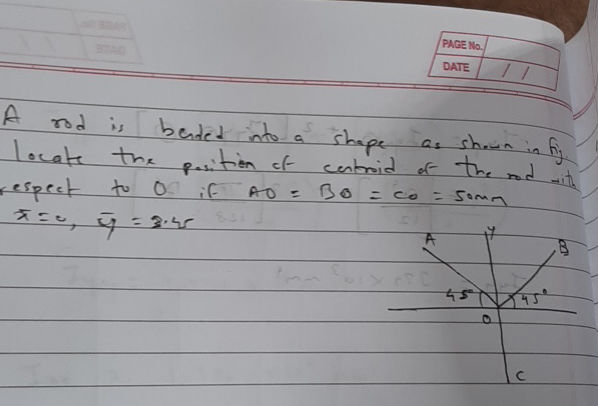 PAGE No.
DATE / /
A rod is bended into a shape as shown in fig.
locate the position of centroid of the rod with
respect to O if AO = BO = CO = 50mm
x̄ = 0, ȳ =
A
y
B
45°
45°
O
C